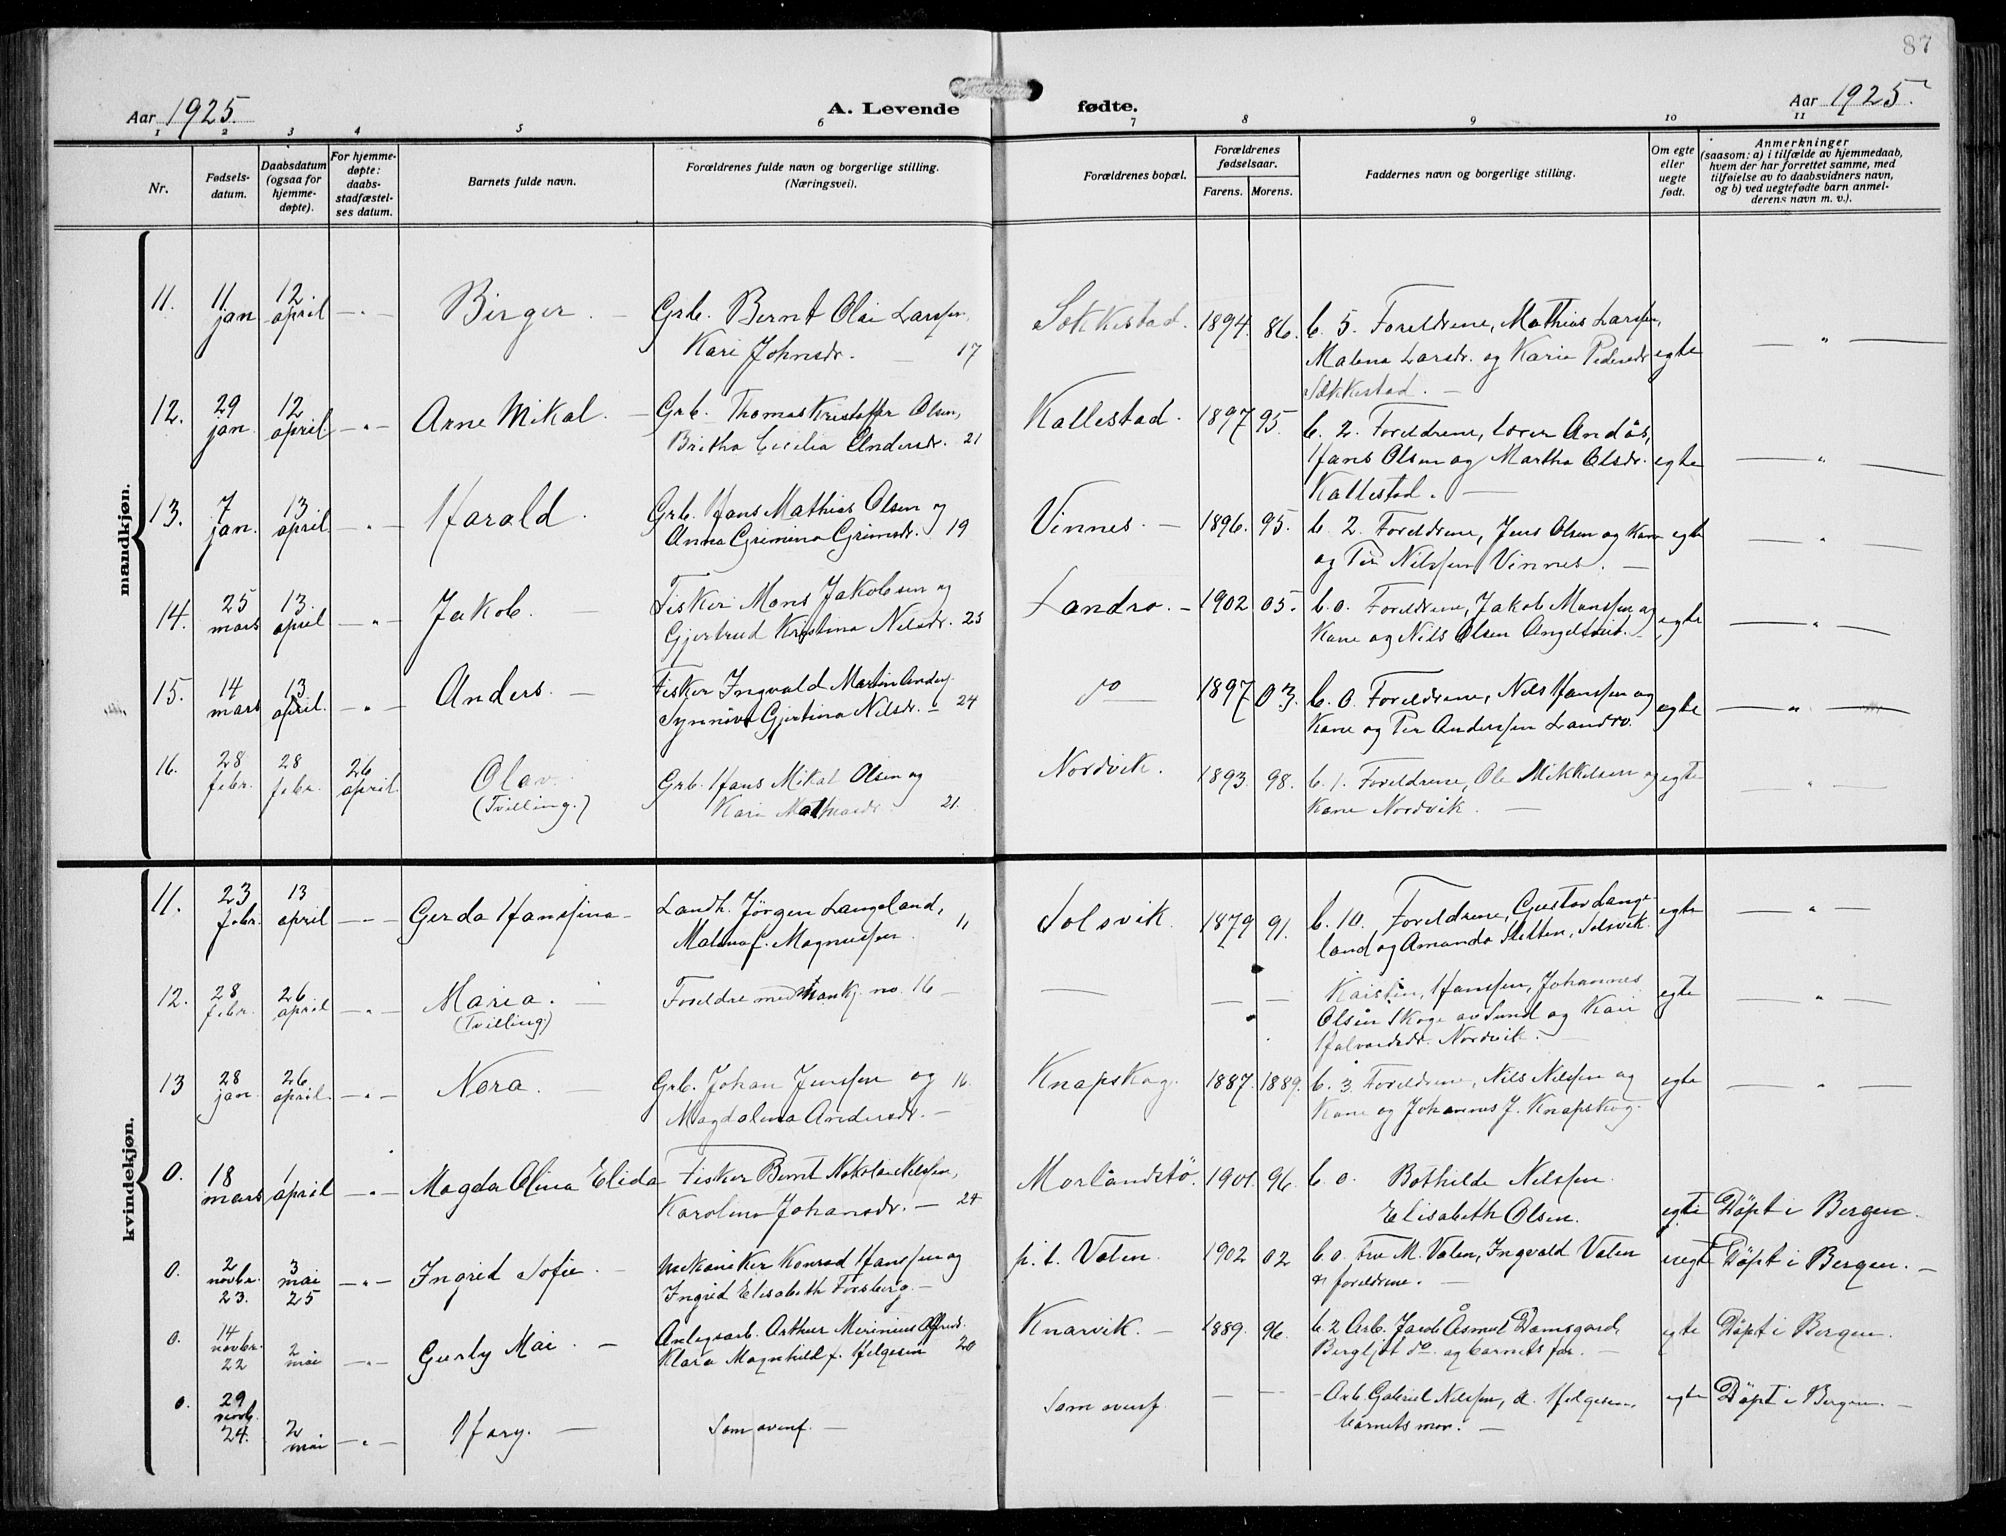 87
Aar 1925.
A. Levende fødte.
Aar 1925.
1 2 3 4 5 6 7 8 9 10 11
Nr.
Fødsels-
datum.
Daabsdatum
(ogsaa for
hjemme-
døpte).
For hjemme-
døpte:
daabs-
stadfæstel-
ses datum.
Barnets fulde navn.
Forældrenes fulde navn og borgerlige stilling.
(Næringsvei).
Forældrenes bopæl.
Forældrenes
fødselsaar.
Farens. Morens.
Faddernes navn og borgerlige stilling.
Om egte
eller
uegte
født.
Anmerkninger
(saasom: a) i tilfælde av hjemmedaab,
hvem der har forrettet samme, med
tilføielse av to daabsvidners navn,
og b) ved uegtefødte barn anmel-
derens navn m. v.).
mandkjøn.
11. 11 jan 12 april — " — Birger. — Grb. Bernt Olai Larssen, Sekkestad. 1894. 86. b. 5. Foreldrene, Mathias Larssen, egte — " —
Kari Johnsdr. — 17 Malena Larsdr. og Karia Pedersdr.
Sekkestad. —
12. 29 jan. 12 april. — " — Arne Mikal. — Grb. Thomas Kristoffer Olsen, Kallestad. 1897 95. b. 2. Foreldrene, lærer Andås, egte — " —
Britha Cecilia Andersdr. 21 Hans Olsen og Martha Olsdr.
Kallestad. —
13. 7 jan. 13 april. — " — Harald. Grb. Hans Mathias Olsen og Vinnes. — 1896. 95. b. 2. Foreldrene, Jens Olsen og kone egte — " —
Anna Grimina Grimsdr. 19 og Per Nilssen Vinnes. —
14. 25 mars 13. april — " — Jakob. — Fisker Mons Jakobsen og Landro. — 1902 05. b. 0. Foreldrene, Jakob Monssen og egte — " —
Gjertrud Kristina Nilsdr. 23 Kone og Nils Olsen Angeltveit. —
15. 14 mars 13. april. — " — Anders. — Fisker Ingvald Martin Anders. do — 1897 03. b. 0. Foreldrene, Nils Hanssen og egte — " —
Synnøve Gjertina Nilsdr. — 24 Kone og Per Anderssen Landro.
16. 28 febr. 28 febr. 26 april. Olav. Grb. Hans Mikal Olsen og Nordvik. 1893. 98. b. 1. Foreldrene, Ole Mikkelsen og egte — " —
(Tvilling.) Kari 21. Kone Nordvik. —
kvindekjøn.
11. 23 febr. 13 april — " — Gerda Hanssina — Landh. Jörgen Langeland, 11 Solsvik. 1879 91. b. 10. Foreldrene, Gustav Lange- egte — " —
Malena f. Magnussen. land og Amanda Sletten, Solsvik.
12. 28 febr. 26 april — " — Maria. — Foreldre med mankj. no. 16 — — — — Hanssen, Johannes egte — " —
(Tvilling) Olsen Skoge av Sund og Kari
Halvardsdr. Nordvik. —
13 28 jan. 26 april. — " — Nora. — Grb. Johan Jenssen og 16. Knapskog. 1887. 1889. b. 3. Foreldrene, Nils Nilssen og egte — " —
Magdalena Andersdr. — Kone og Johannes J. Knapskog.
0. 18 mars 1 april — " — Magda Olina Elida Fisker Bernt Nikolai Nilssen, Morlandstø. 1901. 96. b. 0. Bothilde Nilssen.
Karolina Johansdr. — 24 Elisabeth Olsen. egte Døpt i Bergen.
0. 2 novbr. 23. 3 mai 25 — " — Ingrid Sofie — Mekaniker Konrad Hanssen og p. t. Valen. 1902 02 b. 0. Fru M. Valen, Ingvald Valen uegte Døpt i Bergen. —
Ingrid Elisabeth Forsberg. — & foreldrene. —
0. 14 novbr. 22 2 mai — " — Gurly Mai. — Anlegsarb. Arthur Merinius Alfreds. Knarvik. — 1889. 96. b. 2 Arb. Jacob Åsmul Damsgard, egte Døpt i Bergen.
Klara Magnhild f. Helgesen 20 Bergljot do. og barnets far. —
0. 29 novb. 24. 2 mai — " — Hary. — Som ovenf. — Som ovenf. — — — Arb. Gabriel Nilssen, d. Helgesen, egte Døpt i Bergen. —
barnets mor. —